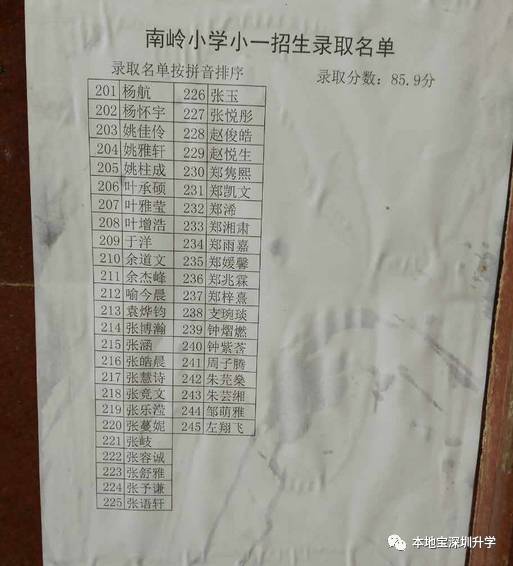 南岭小学小一招生录取名单
录取名单按拼音排序
录取分数：85.9分
201 杨航 226 张玉
202 杨怀宇 227 张悦彤
203 姚佳伶 228 赵俊皓
204 姚雅轩 229 赵悦生
205 姚柱成 230 郑隽熙
206 叶承硕 231 郑凯文
207 叶雅莹 232 郑浠
208 叶增浩 233 郑湘肃
209 于洋 234 郑雨嘉
210 余道文 235 郑媛馨
211 余杰峰 236 郑兆霖
212 喻今晨 237 郑梓熹
213 袁烨钧 238 支琬琰
214 张博瀚 239 钟熠燃
215 张涵 240 钟紫荟
216 张皓晨 241 周子腾
217 张慧诗 242 朱芫燊
218 张竞文 243 朱芸缃
219 张乐滢 244 邹萌雅
220 张蔓妮 245 左翔飞
221 张岐
222 张容诚
223 张舒雅
224 张予谦
225 张语轩
本地宝深圳升学